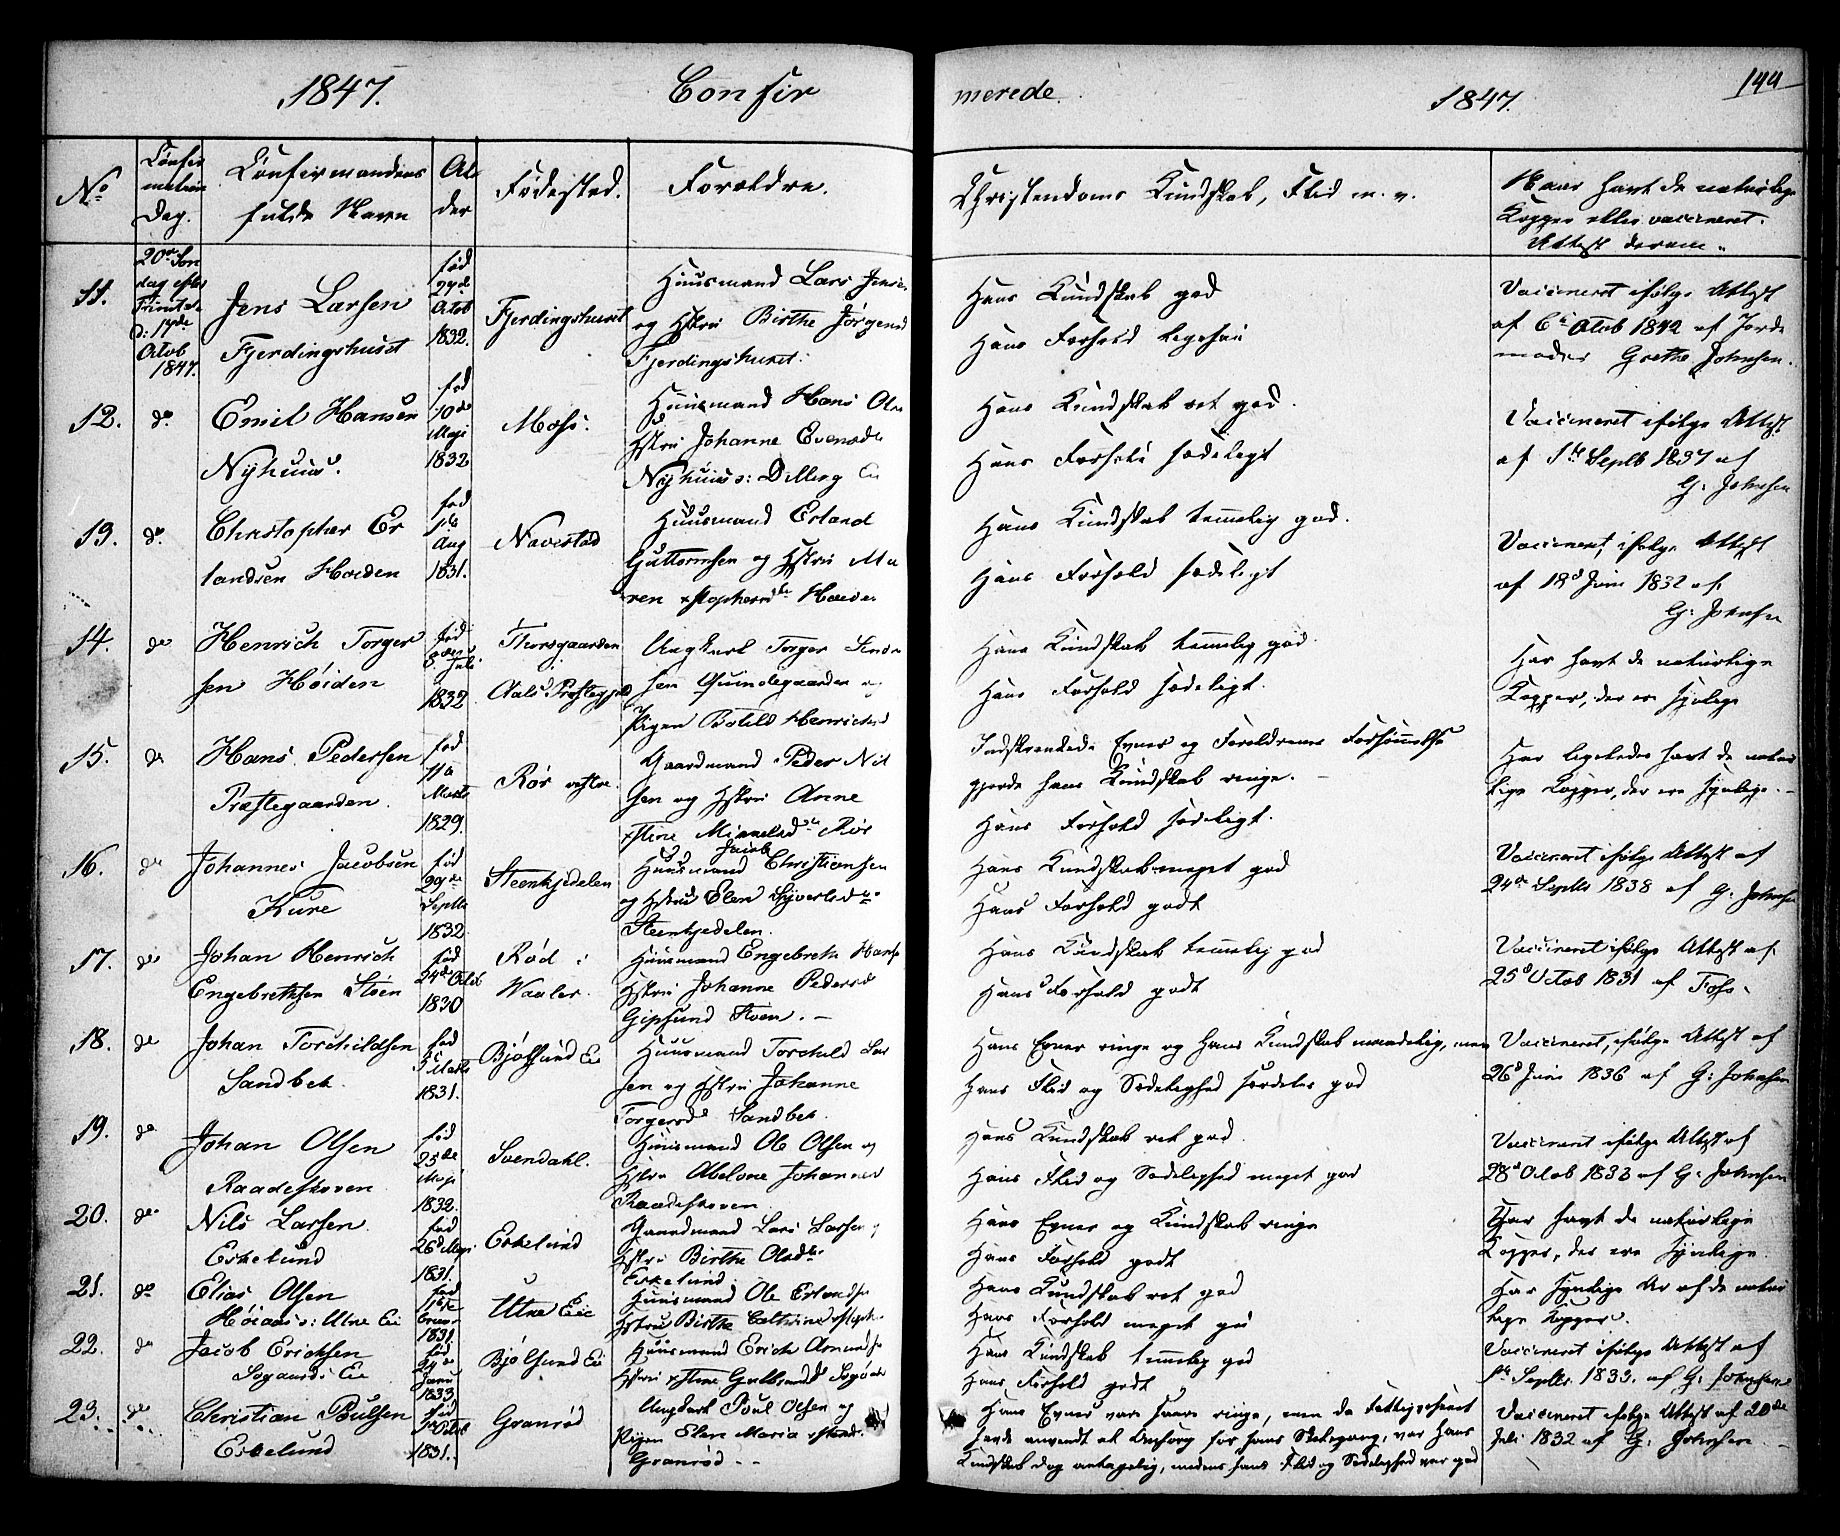 1847.
Confir
merede.
1847.
144
No
Confir
mations
Dag.
Confirmandens
fulde Navn
Al
der
Fødested.
Forældre.
Christendoms Kundskab, Flid m. v.
Naar havt de naturlige
Kopper eller vaccineret.
Attest derom
11.
20de Søn
dag efter
Trinit.
d: 17de
Octob
1847.
Jens Larsen
Fjerdingshuset
fød
Octob
1832.
Fjerdingshuset
Huusmand Lars Jensen
og Hstru Birthe Jørgensd
Fjerdingshuset.
Hans Kundskab god
Hans Forhold
Vaccineret ifølge Attest
af 6te Octob 1842 af Jorde
moder Grethe Johnsen.
12.
do
Emil Hansen
Nyhuus.
fød
10de
Maji
1832
Moss.
Huusmand Hans
Hstru Johanne Evensdr
Nyhuus: Dilling Eie
Hans Kundskab ret god.
Hans Forhold sædeligt
Vaccineret ifølge Attest
af 1ste Septb 1837 af
G: Johnsen
13.
do
Christopher Er
landsen Høiden
fød
Aug
1831.
Navestad
Huusmand Erland
Guttormsen og Hstru Ma
ren xstophersdtr Høiden
Hans Kundskab temmelig god.
Hans Forhold sædeligt
Vaccineret, ifølge Attest
af 18d Juni 1832 af
G: Johnsen
14.
do
Henrich Torger
sen Høiden
fød
8 Juli
1832
Thorsgaarden
Aals Præstegjeld
Ungkarl Torger
sen Guudegaarden og
Pigen Botild Henrichsd
Hans Kundskab temmelig god.
Hans Forhold sædeligt.
Har havt de naturlige
Kopper, der ere synlige
15.
do
Hans Pedersen
Præstegaarden.
fød
11te
Marts
1829.
Rør vestre.
Gaardmand Peder Nil
sen og Hstru Anne
xstine Mikkelsdtr Rør
Indskrænkede Evner og Forældrenes Forsømmelse
gjorde hans Kundskab ringe.
Hans Forhold sædeligt.
Har ligeledes havt de natur
lige Kopper, der ere synlige.
16.
do
Johannes Jacobsen
Kure
fød
29de
Septb
1832.
Steenkjedelen
Jacob
Huusmand Christiansen
og Hstru Elen Syversdtr
Steenkjedelen.
Hans Kundskab meget god
Hans Forhold godt
Vaccineret ifølge Attest af
24de Septb 1838 af G: Johnsen
17.
do
Johan Henrich
Engebrethsen Støen
fød
24de Octob
1830
Rød i
Vaaler.
Huusmand Engebreth Hans
Hstru Johanne Pedersd
Gipsund Støen.
Hans Kundskab temmelig god
Hans Forhold godt
Vaccineret ifølge Attest af
25d Octob 1831 af Foss.
18.
do
Johan Torchildsen
Sandbek.
fød
5te Marts
1831.
Bjølsund Eie
Huusmand Torchild Lar
sen og Hstru Johanne
Torgersd Sandbek.
Hans Evner ringe og Hans Kundskab maadelig, men
Hans Flid og Sædelighed særdeles god
Vaccineret, ifølge Attest af
26d Juni 1836 af G: Johnsen
19.
do
Johan Olsen
Raadeskoven
fød
25de
Maji
1832.
Svendahl.
Huusmand Ole Olsen og
Hstru Abelone Johannesd
Raadeskoven
Hans Kundskab ret god.
Hans Flid og Sædelighed meget god
Vaccineret ifølge Attest af
28d Octob 1833 af G: Johnsen
20.
do
Nils Larsen
Eskelund
fød
26d Maji
1831.
Eskelund
Gaardmand Lars Larsen og
Hstru Birthe Olsdtr
Eskelund
Hans Evner og Kundskab ringe
Hans Forhold godt
Har havt de naturlige
Kopper, der ere synlige.
21.
do
Elias Olsen
Høiaas: Utne Eie
fød
1831.
Utne Eie
Huusmand Ole Erlandsen
Hstru Birthe Cathrine xstoph
Hans Kundskab ret god
Hans Forhold meget god
Har synlige Ar af de natur
lige Kopper.
22.
do
Jacob Erichsen
Sogaards Eie
fød
Janu
1833
Bjølsund Eie
Huusmand Erich Amundsen
Hstru xstine Gulbrandsd
Hans Kundskab temmelig god
Hans Forhold godt
Vaccineret ifølge Attest af
1ste Septbr 1833. af G: Johnsen
23.
do
Christian Poulsen
Eskelund
fød
Octob
1831.
Granrød
Ungkarl Poul Olsen og
Pigen Elen Maria
Granrød
Hans Evner vare saare ringe, men da Fattigvæsenet
havde anvendt al Omsorg for hans Skolegang, var Hans
Kundskab dog antagelig, medens hans Flid og Sædelighed var god
Vaccineret ifølge Attest af 20de
Juli 1832 af G: Johnsen